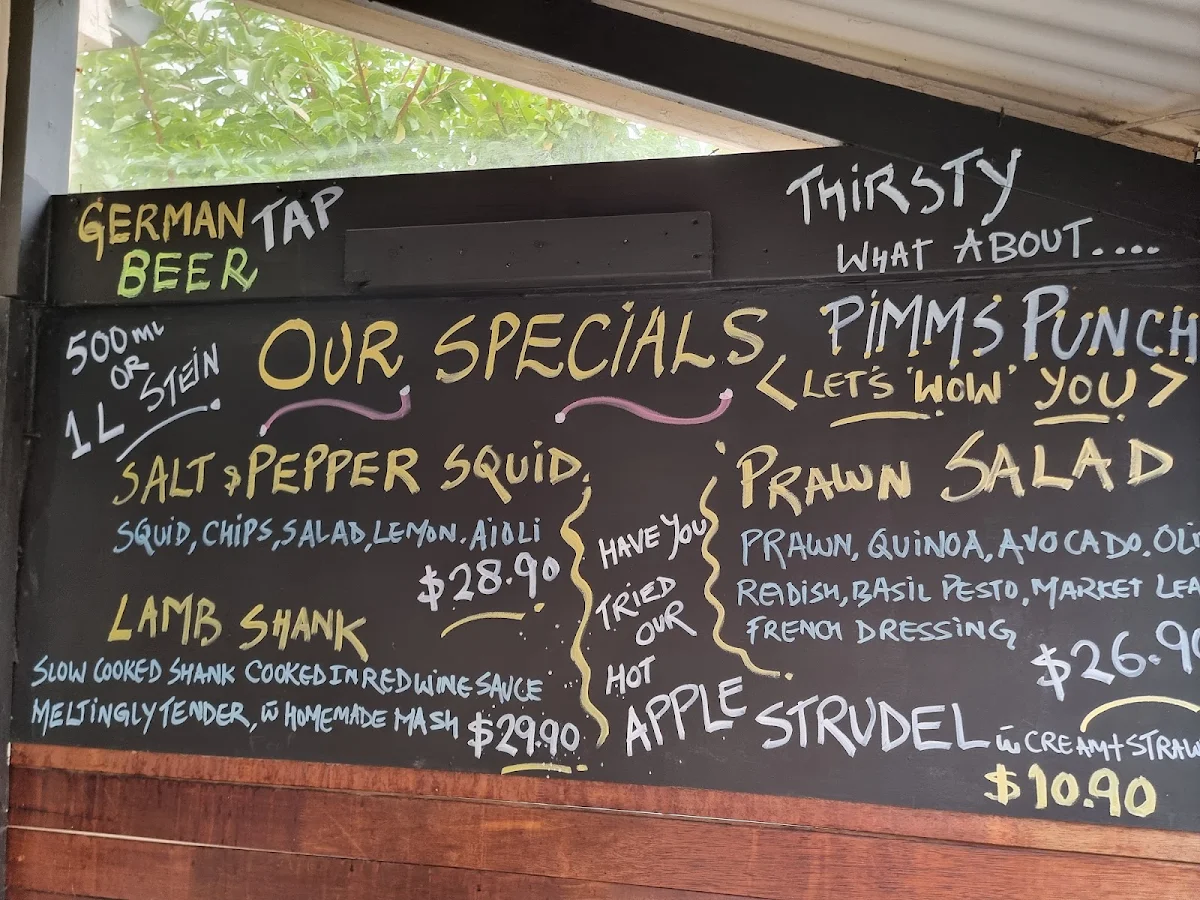 GERMAN TAP
BEER
500ML
OR
1L STEIN
THIRSTY
WHAT ABOUT....
PIMMS PUNCH
<LET'S 'WOW' YOU>
OUR SPECIALS
SALT & PEPPER SQUID
SQUID, CHIPS, SALAD, LEMON. AIOLI
$28.90
LAMB SHANK
SLOW COOKED SHANK COOKED IN RED WINE SAUCE
MELTINGLY TENDER, w̄ HOMEMADE MASH $29.90
PRAWN SALAD
PRAWN, QUINOA, AVOCADO. OLI
READISH, BASIL PESTO, MARKET LEA
FRENCH DRESSING
$26.90
HAVE YOU
TRIED
OUR
HOT
APPLE STRUDEL w̄ CREAM + STRAW
$10.90